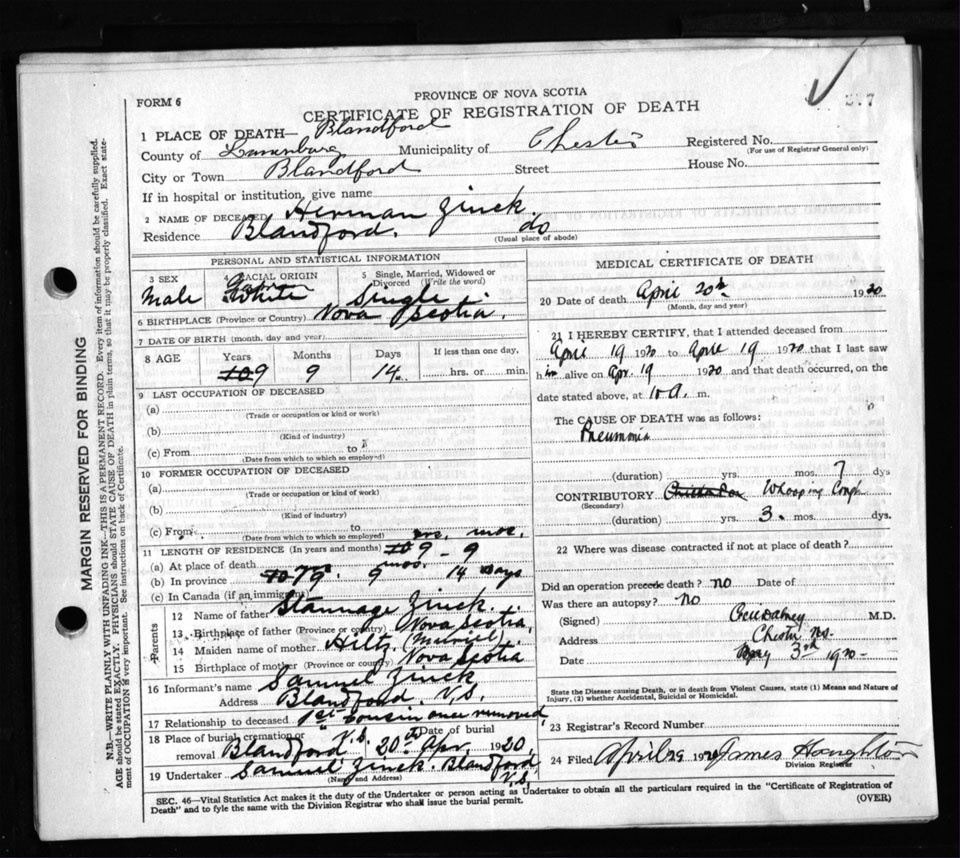 FORM 6
PROVINCE OF NOVA SCOTIA
CERTIFICATE OF REGISTRATION OF DEATH
1 PLACE OF DEATH— Blandford
County of Lunenburg Municipality of Chester Registered No.
(For use of Registrar General only)
City or Town Blandford Street House No.
If in hospital or institution, give name
2 NAME OF DECEASED Herman Zinck
Residence Blandford. do
(Usual place of abode)
PERSONAL AND STATISTICAL INFORMATION
3 SEX 4 RACIAL ORIGIN 5 Single, Married, Widowed or Divorced (Write the word)
Male White Single
6 BIRTHPLACE (Province or Country) Nova Scotia.
7 DATE OF BIRTH (month, day and year)
8 AGE Years Months Days If less than one day,
10 9 9 14 hrs. or min.
9 LAST OCCUPATION OF DECEASED
(a)
(Trade or occupation or kind of work)
(b)
(Kind of industry)
(c) From to
(Date from which to which so employed)
10 FORMER OCCUPATION OF DECEASED
(a)
(Trade or occupation or kind of work)
(b)
(Kind of industry)
(c) From to
(Date from which to which so employed) yrs. mos.
11 LENGTH OF RESIDENCE (In years and months) 10 9 - 9
(a) At place of death
(b) In province 9 mos. 14 days
(c) In Canada (if an immigrant)
Parents
12 Name of father Stannage Zinck.
13 Birthplace of father (Province or country) Nova Scotia,
14 Maiden name of mother Hiltz (Muriel).
15 Birthplace of mother (Province or country) Nova Scotia
16 Informant's name Samuel Zinck
Address Blandford, N.S.
17 Relationship to deceased 1st cousin once removed
18 Place of burial, cremation or removal Blandford N.S. Date of burial 20th Apr, 1930,
19 Undertaker Samuel Zinck. Blandford, N.S.
(Name and Address)
MEDICAL CERTIFICATE OF DEATH
20 Date of death April 20th 1930
(Month, day and year)
21 I HEREBY CERTIFY, that I attended deceased from
April 19 1930 to April 19 1930 that I last saw
him alive on Apr. 19 1930 and that death occurred, on the
date stated above, at 10 A. m.
The CAUSE OF DEATH was as follows:
Pneumonia
(duration) yrs. mos. 7 dys
CONTRIBUTORY Chicken Pox Whooping Cough
(Secondary)
(duration) yrs. 3. mos. dys.
22 Where was disease contracted if not at place of death?
Did an operation precede death? No Date of
Was there an autopsy? No
(Signed) M.D.
Address Chester N.S.
Date May 3rd 1930
State the Disease causing Death, or in death from Violent Causes, state (1) Means and Nature of Injury, (2) whether Accidental, Suicidal or Homicidal.
23 Registrar's Record Number
24 Filed April 29 1930 James Houghton
Division Registrar
SEC. 46—Vital Statistics Act makes it the duty of the Undertaker or person acting as Undertaker to obtain all the particulars required in the "Certificate of Registration of
Death" and to fyle the same with the Division Registrar who shall issue the burial permit. (OVER)
MARGIN RESERVED FOR BINDING
N.B.—WRITE PLAINLY WITH UNFADING INK—THIS IS A PERMANENT RECORD. Every item of information should be carefully supplied.
AGE should be stated EXACTLY. PHYSICIANS should STATE CAUSE OF DEATH in plain terms, so that it may be properly classified. Exact state-
ment of OCCUPATION is very important. See instructions on back of Certificate.